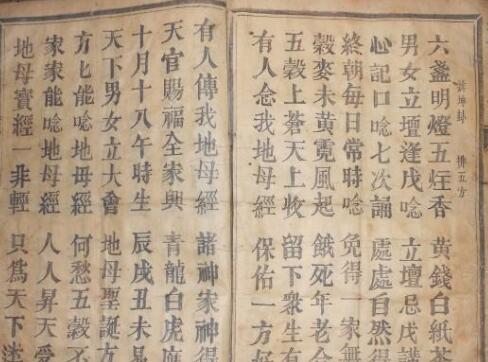 六盞明燈五炷香 黃錢白紙茶
坤卦 排五方
男女立壇逢戊唸 立壇忌戊講
心記口唸七次誦 處處自然得
終朝每日常時唸 免得一家無
穀麥未黃霓風起 餓死年老
五穀上蒼天上收 留下衆生有
有人念我地母經 保佑一方好
有人傳我地母經 諸神家神得
天官賜福全家興 青龍白虎
十月十八午時生 辰戌丑未
天下男女立大會 地母聖誕
方匕能唸地母經 何愁五穀不
家家能唸地母經 人人昇天受
地母寶經一非輕 只爲天下迷